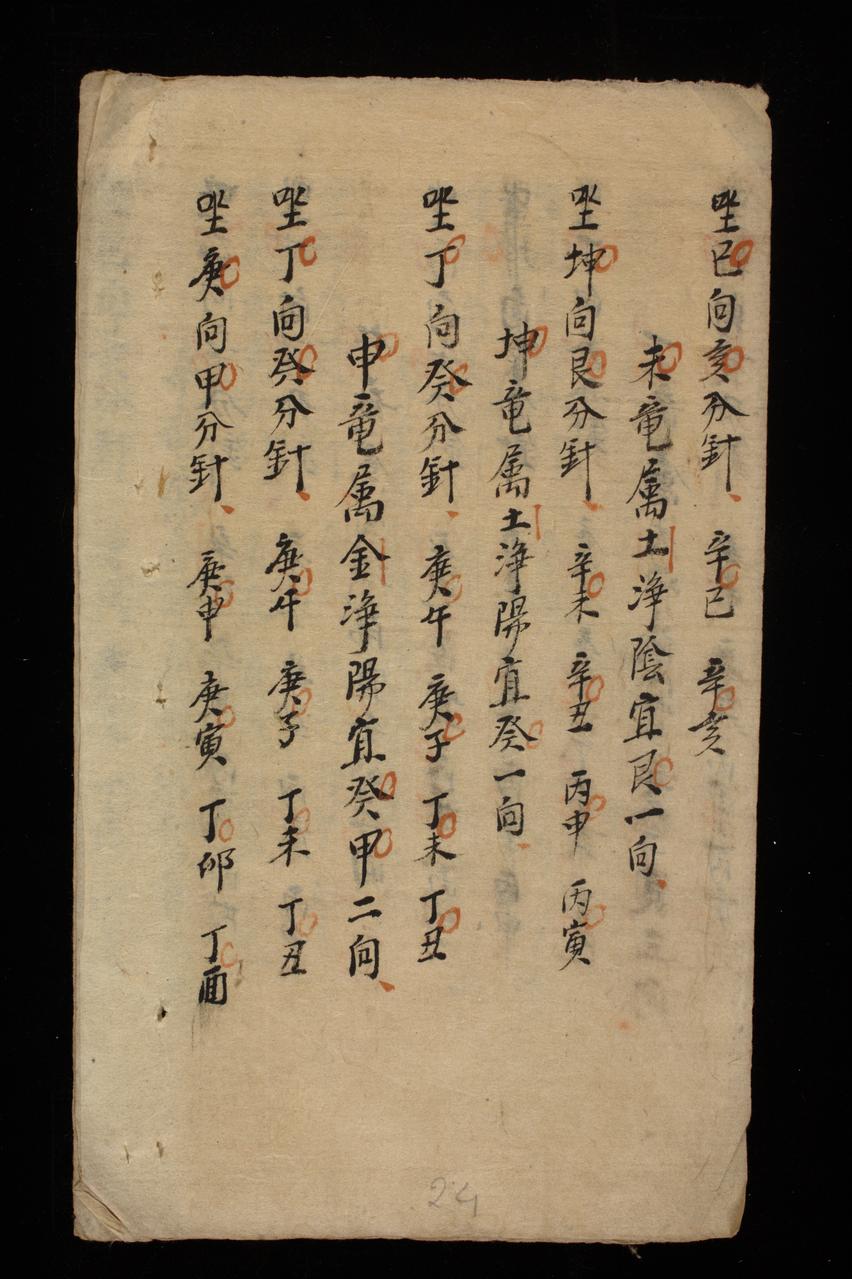 坐巳向亥分針、辛巳 辛亥
未竜属土浄陰宜艮一向、
坐坤向艮分針、辛未 辛丑 丙申 丙寅
坤竜属土浄陽宜癸一向、
坐丁向癸分針、庚午 庚子 丁未 丁丑
申竜属金浄陽宜癸甲二向、
坐丁向癸分針、庚午 庚子 丁未 丁丑
坐庚向甲分針、庚申 庚寅 丁卯 丁酉
24